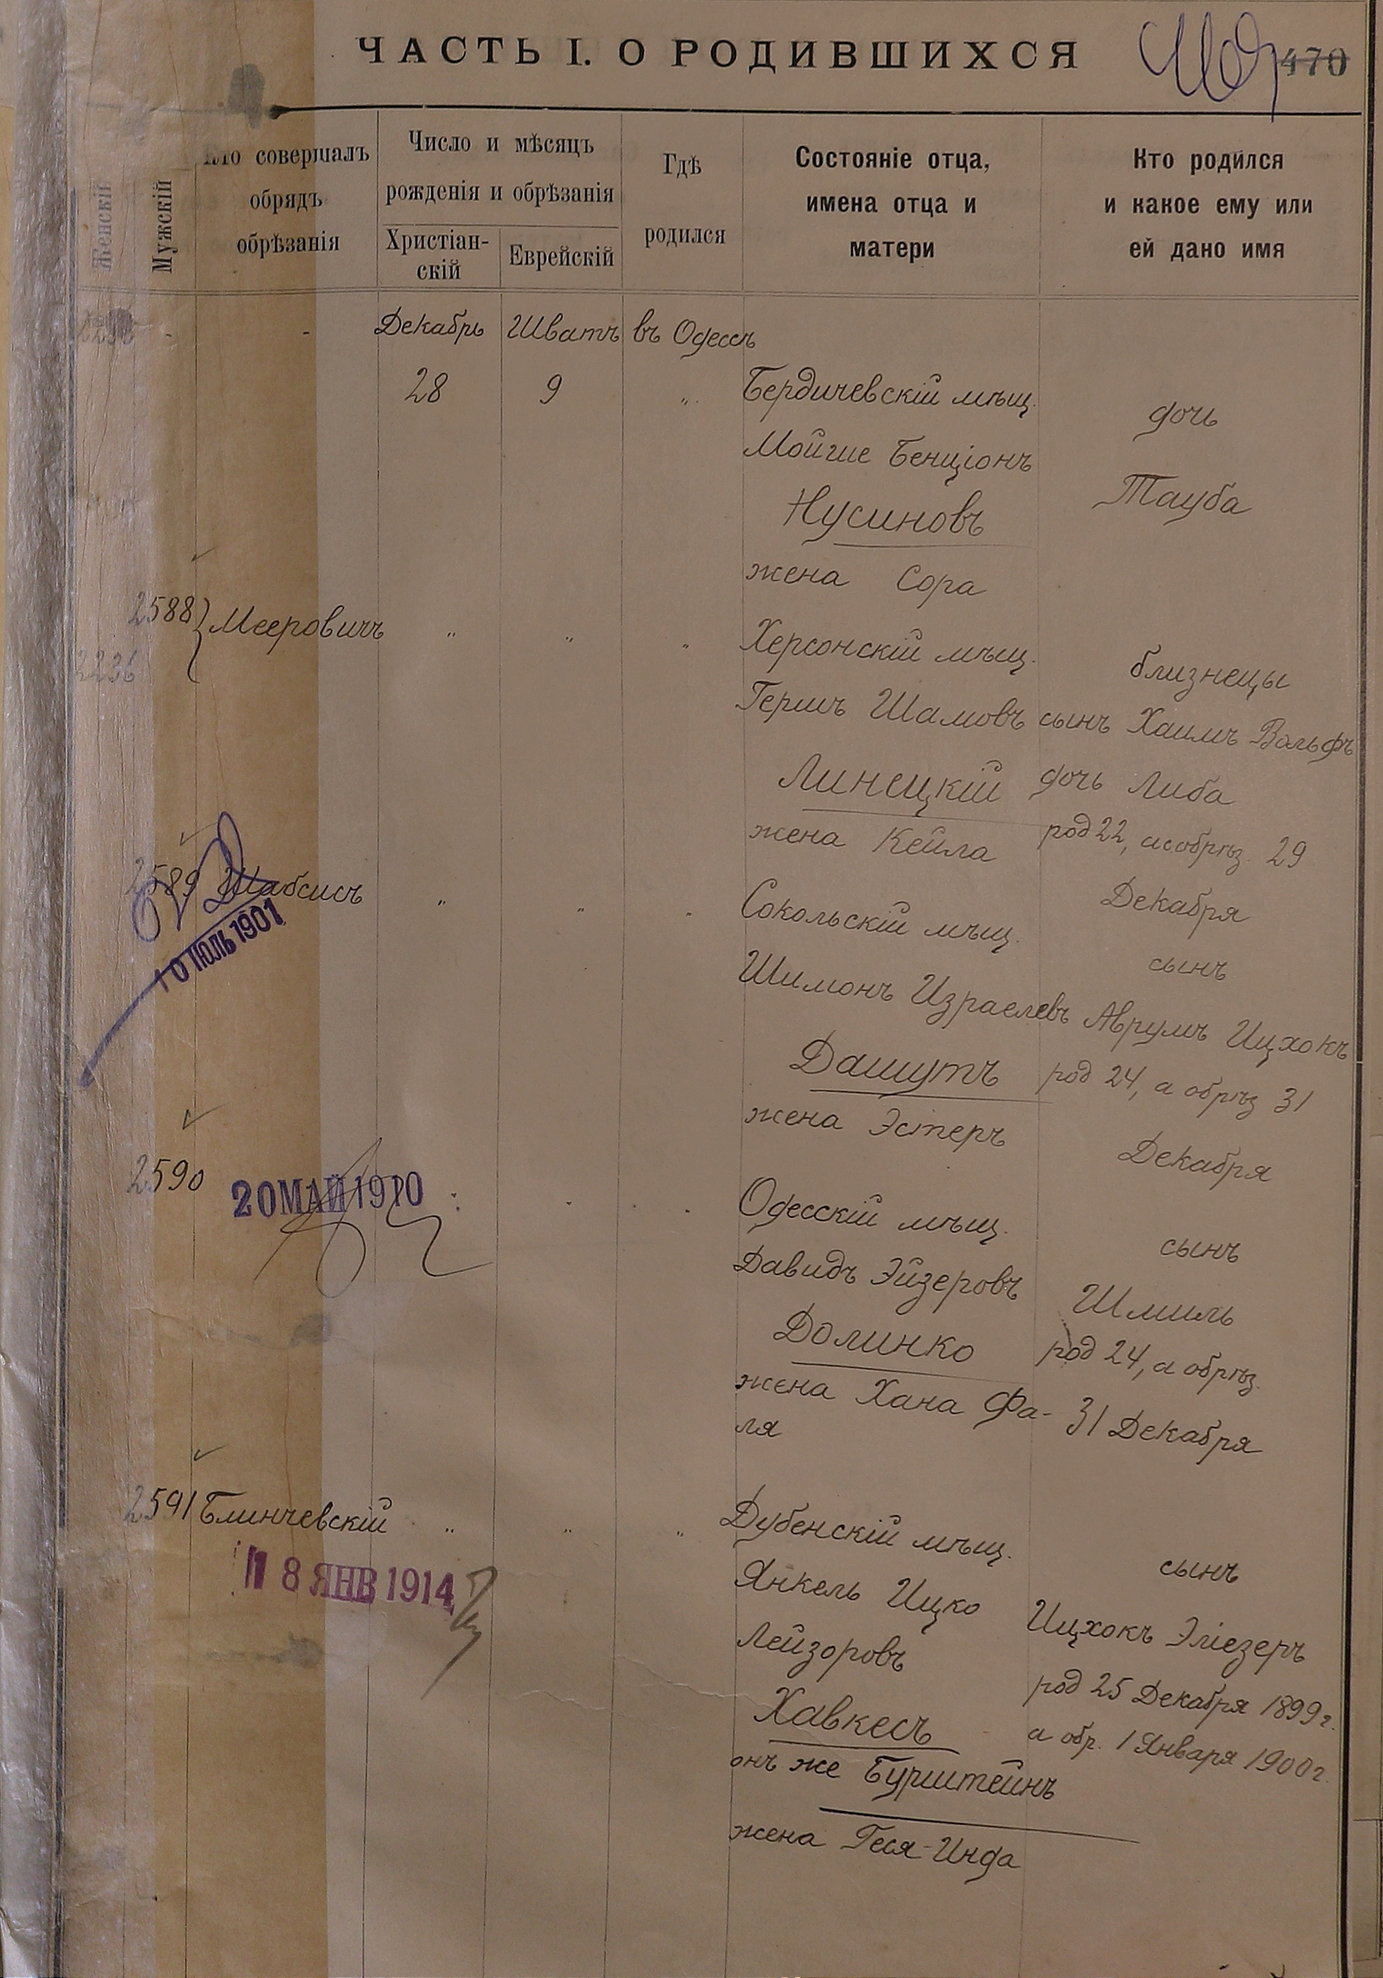 ЧАСТЬ I. О РОДИВШИХСЯ
470
Женскій
Мужскій
Кто совершалъ
обрядъ
обрѣзанія
Число и мѣсяцъ
рожденія и обрѣзанія
Христіан-
скій
Еврейскій
Гдѣ
родился
Состояніе отца,
имена отца и
матери
Кто родился
и какое ему или
ей дано имя
- - Декабрь Шватъ въ Одессѣ
28 9 " Бердичевскій мѣщ. дочь
Мойше Бенціонъ
Нусиновъ Тауба
жена Сора
2588 Мееровичъ " " " Херсонскій мѣщ. близнецы
2236
Гершъ Шамовъ сынъ Хаимъ Вольфъ
Линецкій дочь Либа
жена Кейла род 22, а обрѣз. 29
Декабря
2589 Шабсисъ " " " Сокольскій мѣщ. сынъ
10 ІЮЛЬ 1901
Шимонъ Израелевъ Аврумъ Ицхокъ
Дашутъ род 24, а обрѣз 31
жена Эстеръ Декабря
2590 " " " Одесскій мѣщ. сынъ
20 МАЙ 1910
Давидъ Эйзеровъ Шмиль
Долинко род 24, а обрѣз.
жена Хана Фа- 31 Декабря
ля
2591 Блинчевскій " " " Дубенскій мѣщ. сынъ
18 ЯНВ 1914
Янкель Ицко Ицхокъ Эліезеръ
Лейзоровъ род 25 Декабря 1899 г.
Хавкесъ а обр. 1 Января 1900 г.
онъ же Бурштейнъ
жена Геся-Инда